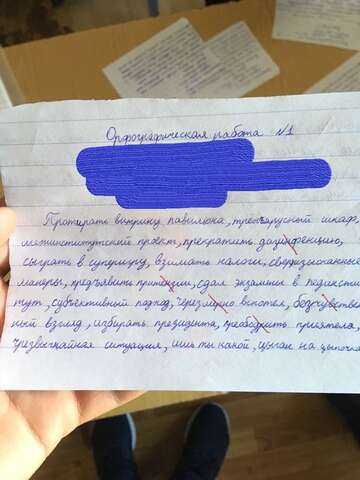 Орфографическая работа №1
Протирать витрину павильона, трёхъярусный шкаф,
межинститутский проект, прекратить дезинфекцию,
сыграть в суперигру, взимать налоги, сверхизысканные
манеры, предъявить притензии, сдал экзамены в пединсти
тут, субъективный подход, вичотел, безчувствен
ный взгляд, избирать президента, приятеля,
чрезвычайная ситуация, ишь ты какой, цыган на цыпочк